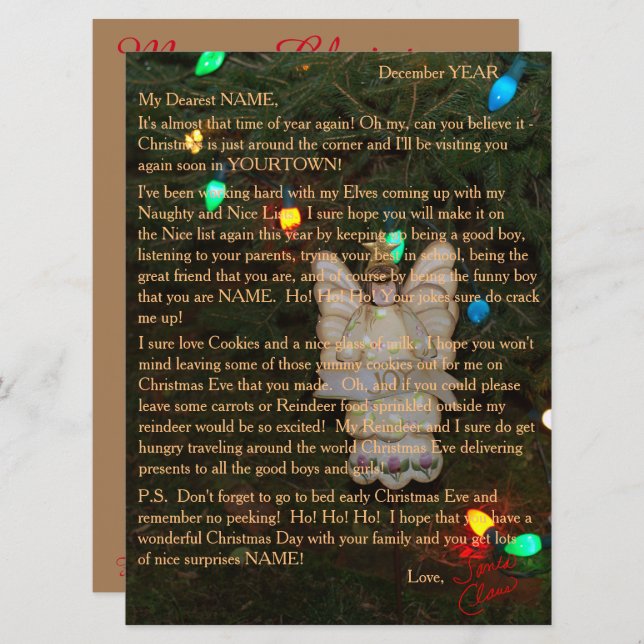 December YEAR
My Dearest NAME,
It's almost that time of year again! Oh my, can you believe it -
Christmas is just around the corner and I'll be visiting you
again soon in YOURTOWN!
I've been working hard with my Elves coming up with my
Naughty and Nice Lists. I sure hope you will make it on
the Nice list again this year by keeping up being a good boy,
listening to your parents, trying your best in school, being the
great friend that you are, and of course by being the funny boy
that you are NAME. Ho! Ho! Ho! Your jokes sure do crack
me up!
I sure love Cookies and a nice glass of milk. I hope you won't
mind leaving some of those yummy cookies out for me on
Christmas Eve that you made. Oh, and if you could please
leave some carrots or Reindeer food sprinkled outside my
reindeer would be so excited! My Reindeer and I sure do get
hungry traveling around the world Christmas Eve delivering
presents to all the good boys and girls!
P.S. Don't forget to go to bed early Christmas Eve and
remember no peeking! Ho! Ho! Ho! I hope that you have a
wonderful Christmas Day with your family and you get lots
of nice surprises NAME!
Love, Santa
Claus